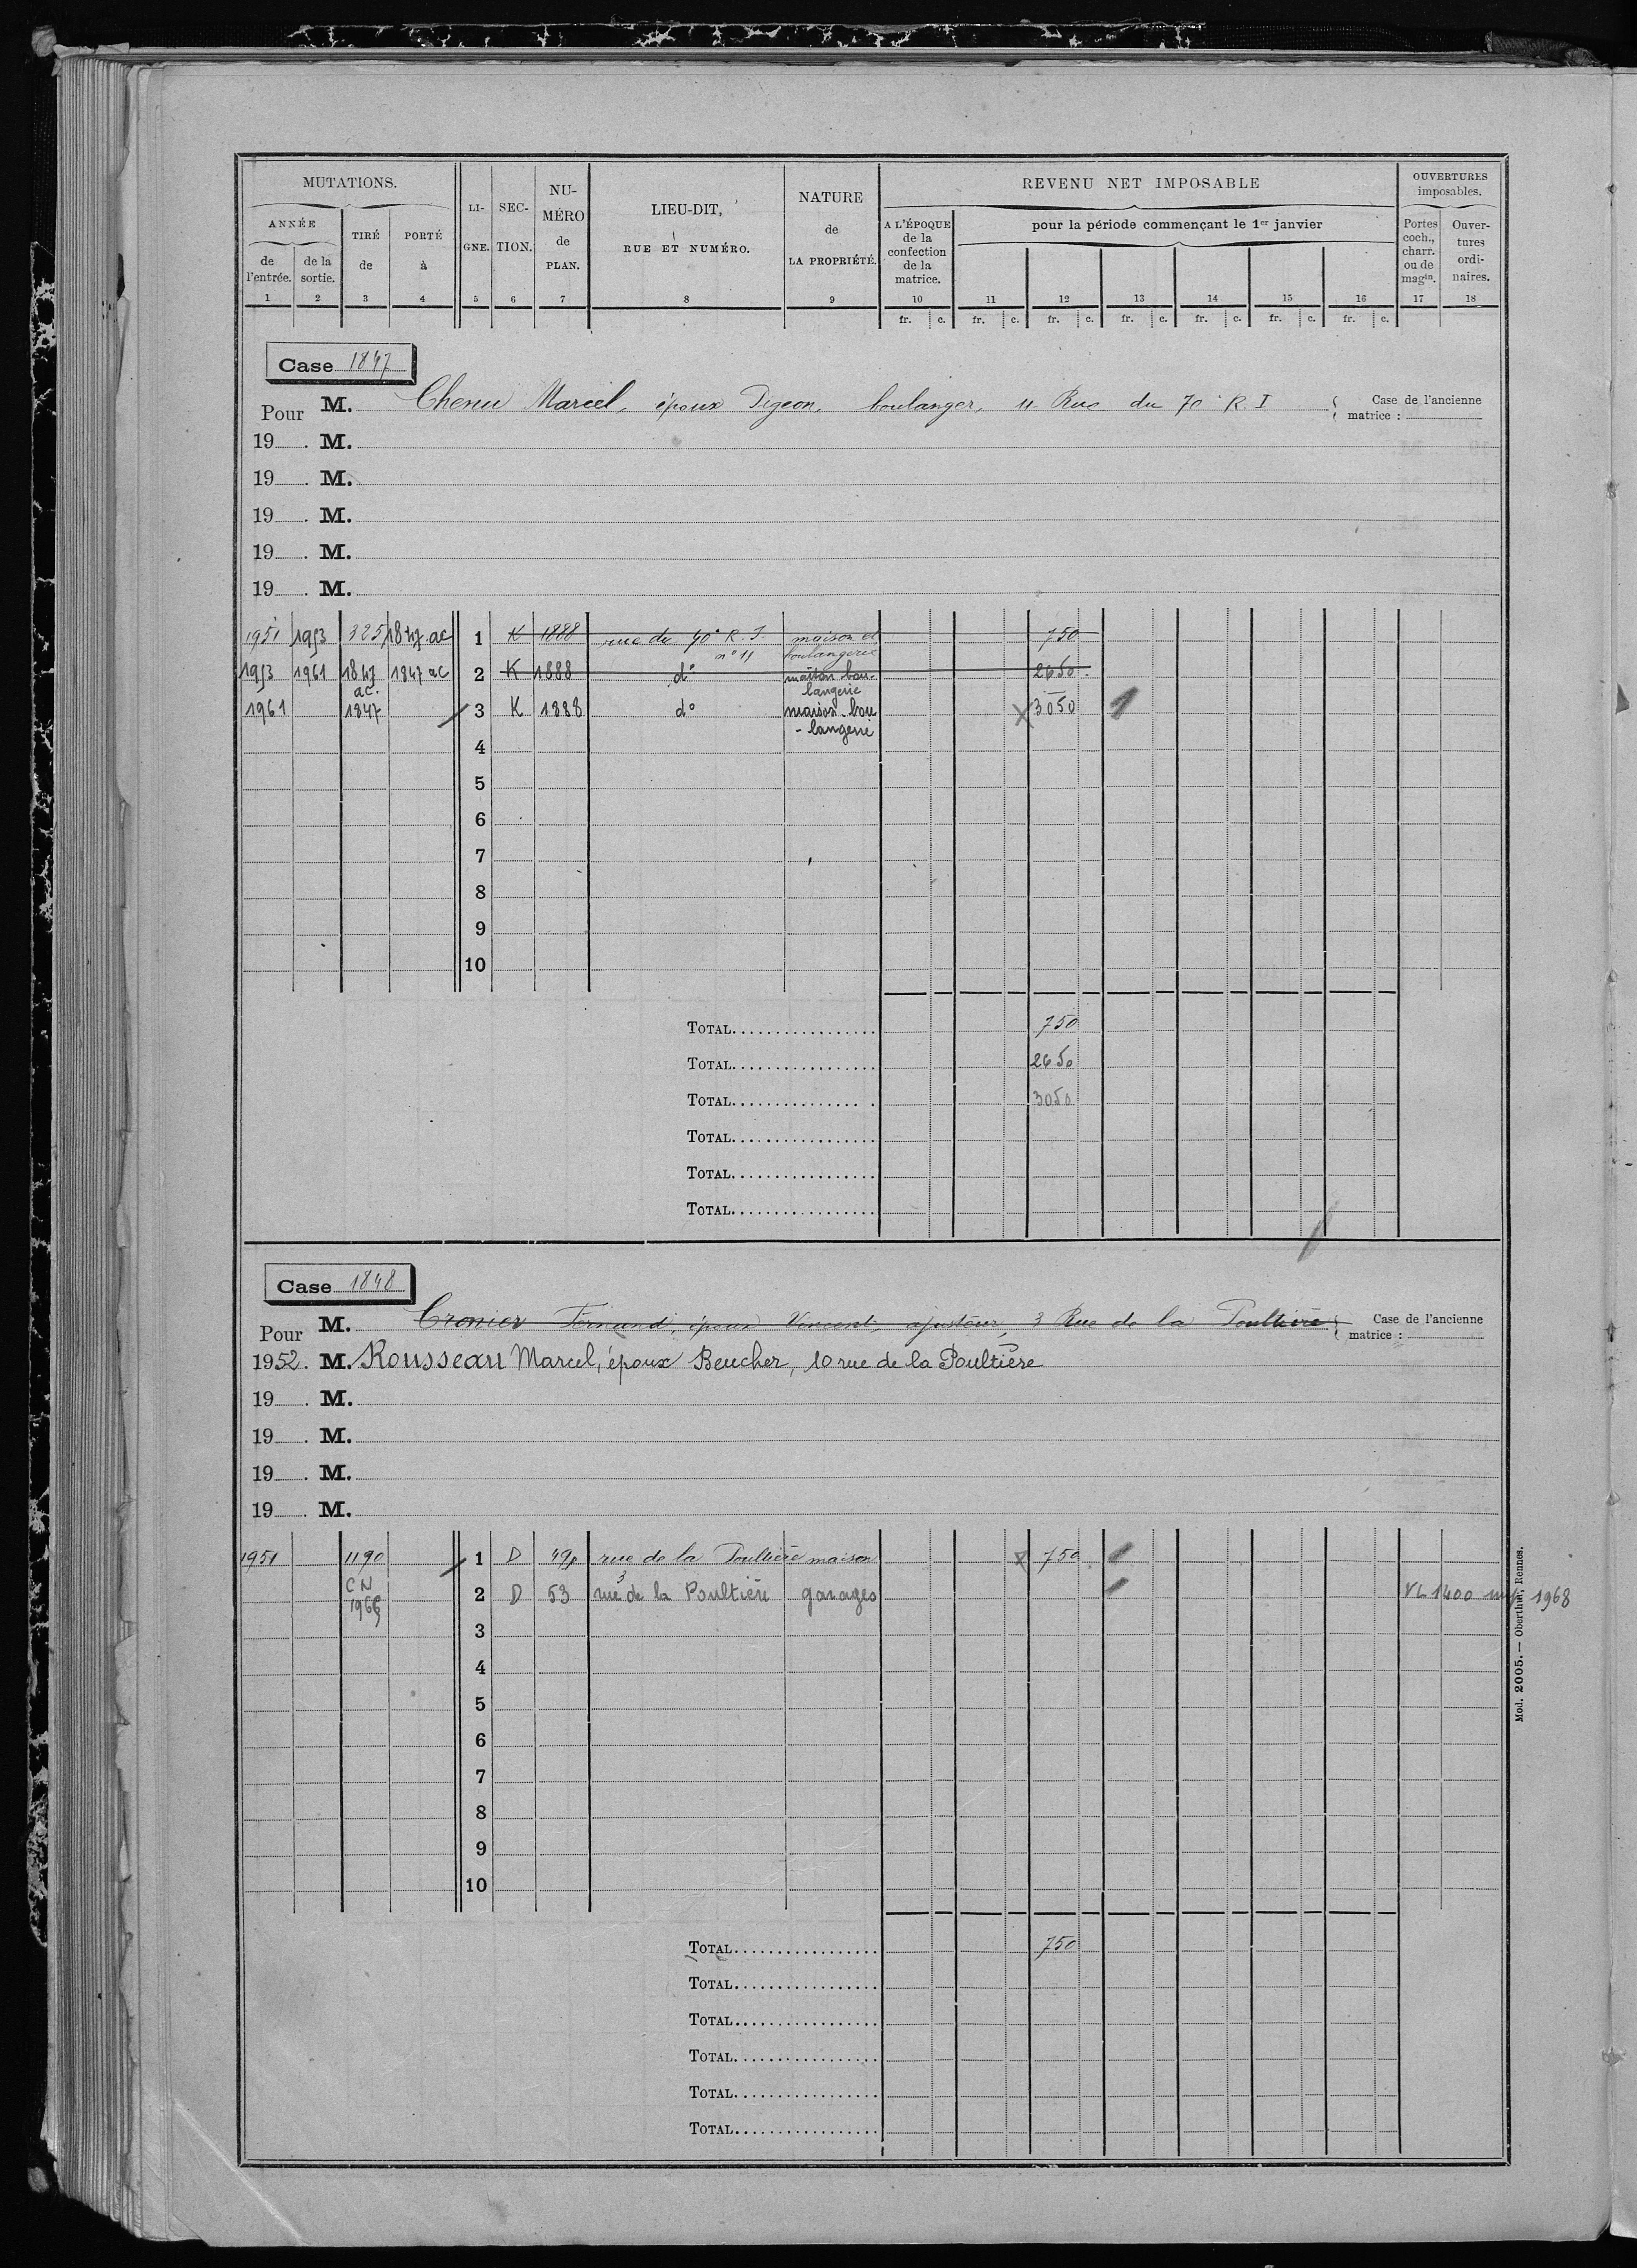 MUTATIONS.
ANNÉE
de l'entrée. de la sortie. TIRÉ de PORTÉ à
LI-GNE. SEC-TION. NU-MÉRO de PLAN.
LIEU-DIT, RUE ET NUMÉRO.
NATURE de LA PROPRIÉTÉ.
REVENU NET IMPOSABLE
A L'ÉPOQUE de la confection de la matrice.
pour la période commençant le 1er janvier
OUVERTURES imposables.
Portes coch., charr. ou de magin. Ouver-tures ordi-naires.
1 2 3 4 5 6 7 8 9 10 11 12 13 14 15 16 17 18
fr. c. fr. c. fr. c. fr. c. fr. c. fr. c. fr. c.
Case 1847
Pour M. Chenu Marcel, époux Pigeon, boulanger, 11 Rue du 70e R.I
Case de l'ancienne matrice :
19 . M.
19 . M.
19 . M.
19 . M.
19 . M.
1951 1953 325 1847.ac 1 K 1888 rue du 70e R.I. n° 11 maison et boulangerie 750
1953 1961 1847 ac. 1847 ac 2 K 1888 d° maison bou-langerie 2650
1961 1847 3 K 1888 d° maison-bou-langerie 3050
4
5
6
7
8
9
10
TOTAL 750
TOTAL 2650
TOTAL 3050
TOTAL
TOTAL
TOTAL
Case 1848
Pour M. Cronier Fernand, époux Vincent, ajusteur, 3 Rue de la Poultière
Case de l'ancienne matrice :
1952. M. Rousseau Marcel, époux Beucher, 10 rue de la Poultière
19 . M.
19 . M.
19 . M.
19 . M.
1951 1190 1 D 49p rue de la Poultière maison 750
CN 1966 2 D 53 3 rue de la Poultière garages VL 1400 1968
3
4
5
6
7
8
9
10
TOTAL 750
TOTAL
TOTAL
TOTAL
TOTAL
TOTAL
Mod. 2005. — Oberthur, Rennes.